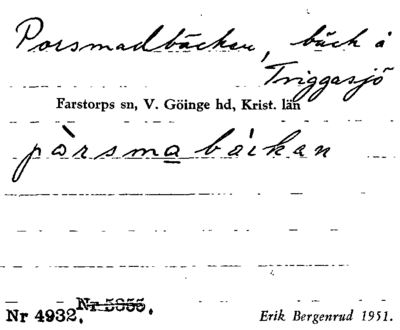 Porsmadbäcken, bäck å
Triggasjö
Farstorps sn, V. Göinge hd, Krist. län
pàrsmabækan
Nr 4932. Nr 5855.
Erik Bergenrud 1951.